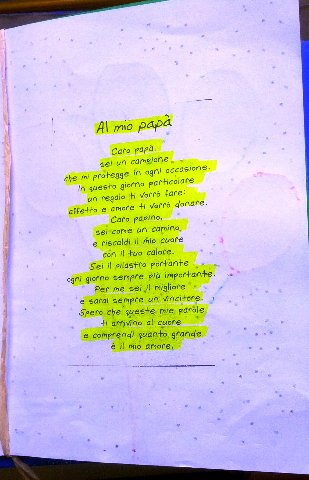 Al mio papà
Caro papà,
sei un campione
che mi protegge in ogni occasione.
In questo giorno particolare
un regalo ti vorrò fare:
affetto e amore ti vorrò donare.
Caro papino,
sei come un camino,
e riscaldi il mio cuore
con il tuo calore.
Sei il pilastro portante
ogni giorno sempre più importante.
Per me sei il migliore
e sarai sempre un vincitore.
Spero che queste mie parole
ti arrivino al cuore
e comprendi quanto grande
è il mio amore.